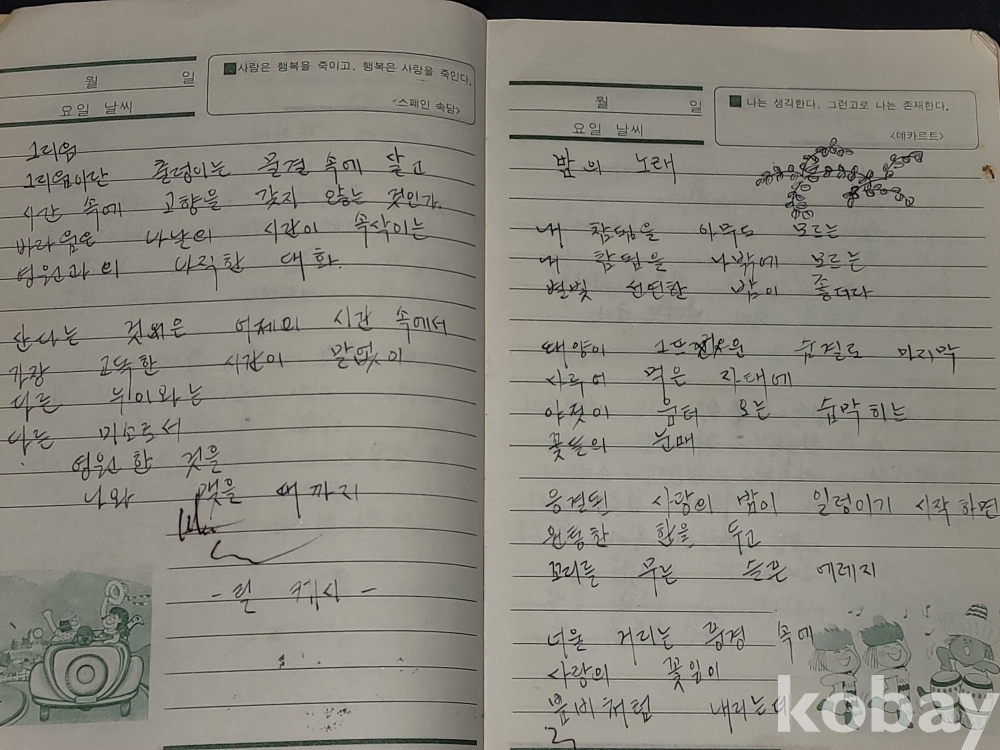 월 일
요일 날씨
사랑은 행복을 죽이고, 행복은 사랑을 죽인다.
<스페인 속담>
그리움
그리움이란 출렁이는 물결 속에 살고
시간 속에 고향을 갖지 않는 것인가.
바라움은 나날의 시간이 속삭이는
영원과의 나직한 대화.
산다는 것은 어제의 시간 속에서
가장 고독한 시간이 말없이
다른 누이와는
다른 미소로서
영원한 것을
나와 맺을 때까지
- 릴케시 -
월 일
요일 날씨
나는 생각한다. 그런고로 나는 존재한다.
<데카르트>
밤의 노래
내 참됨을 아무도 모르는
내 참됨을 나밖에 모르는
별빛 선연한 밤이 좋더라
태양이 숨결로 마지막
사루어 먹은 자태에
야젓이 움터 오는 숨막히는
꽃들의 눈매
응결된 사랑의 밤이 일렁이기 시작하면
완등한 함을 두고
꼬리를 무는 슬픈 에레지
너울 거리는 풍경 속에
사랑의 꽃잎이
봄비처럼 내리는
kobay